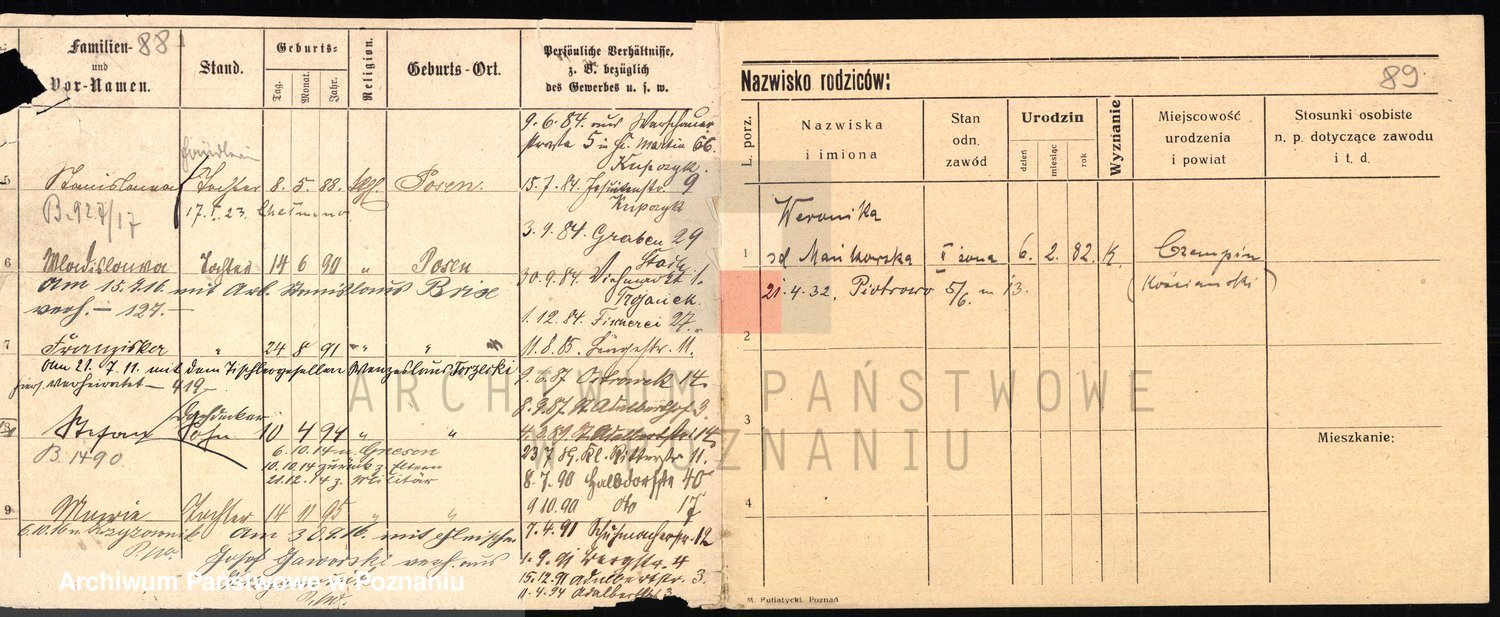 88
Familien-
und
Vor-Namen.
Stand.
Geburts-
Tag.
Monat.
Jahr.
Religion.
Geburts-Ort.
Persönliche Verhältnisse,
z. B. bezüglich
des Gewerbes u. s. w.
5 Stanislawa Tochter 8. 5. 88. Posen.
B. 927/17 17. 23.
6 Wladislawa Tochter 14 6 90 " Posen
Am 15.7.16 mit Arb. Stanislaus Brix
verh. — 127. —
7 Franziska " 24 8 91 " "
am 21. 7. 11. mit dem Tischlergesellen Wenzeslaus
verheiratet — 919 —
Dachdecker
Stefan Sohn 10 4 94 " "
B. 1490. 6.10.14 n. Gnesen
10.10.14 zurück z. Eltern
21.12.14 z. Militär
9 Marie Tochter 14 11 95 " "
Am 30.9.16. mit
Josef Jaworski verh. aus
9. 6. 84 aus Warschauer-
5 St. Martin 66.
Kupczyk.
15. 7. 84. Jesuitenstr. 9
Kupczyk
3. 9. 84. Graben 29
30. 9. 84. Viehmarkt 1.
Trojanek
1. 12. 84. 27.
11. 8. 85. 11.
9. 6. 87 Ostrowek 14
8. 9. 87 St. 3.
4. 3. 89. St. Adalbertstr. 14
23. 7. 89. Kl. Ritterstr. 11.
8. 7. 90 Halbdorfstr 40
9 10. 90 dto 17
7. 4. 91 Schuhmacherstr. 12
1. 9. 91 Bergstr. 4
15. 12. 91 Adalbertstr. 3.
11. 4. 94 Adalbertstr 3
Nazwisko rodziców:
89.
L. porz.
Nazwiska
i imiona
Stan
odn.
zawód
Urodzin
dzień
miesiąc
rok
Wyznanie
Miejscowość
urodzenia
i powiat
Stosunki osobiste
n. p. dotyczące zawodu
i t. d.
Weronika
1 zd Mańkowska II żona 6. 2. 82. K. Czempiń
21. 4. 32. Piotrowo 5/6. m 13. (Kościański)
2
3
Mieszkanie:
4
M. Putiatycki, Poznań
ARCHIWUM PAŃSTWOWE
W POZNANIU
Archiwum Państwowe w Poznaniu